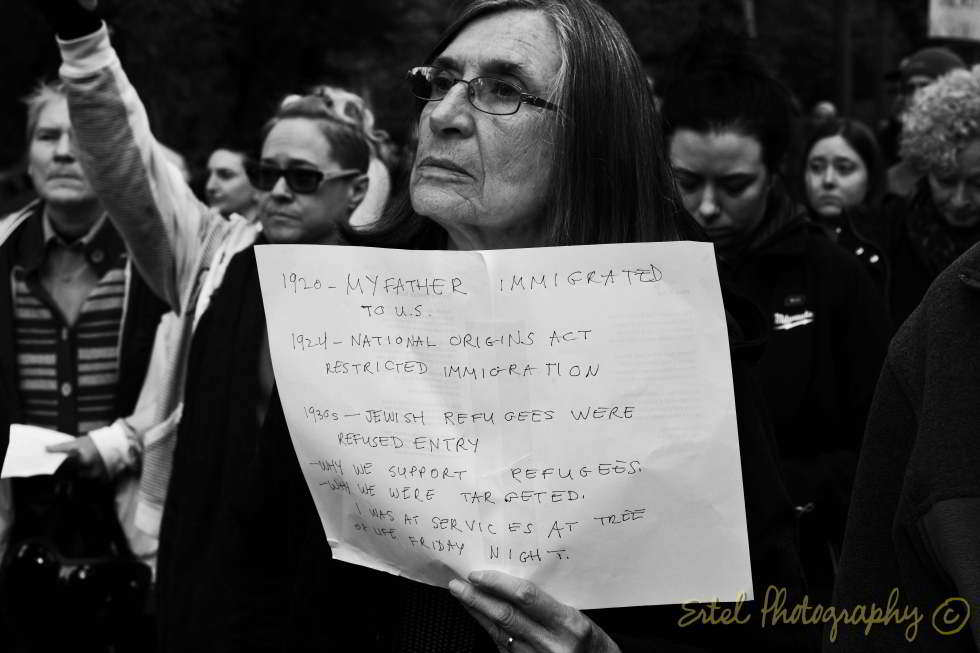 1920 - MY FATHER IMMIGRATED
TO U.S.
1924 - NATIONAL ORIGINS ACT
RESTRICTED IMMIGRATION
1930s - JEWISH REFUGEES WERE
REFUSED ENTRY
- WHY WE SUPPORT REFUGEES.
- WHY WE WERE TARGETED.
I WAS AT SERVICES AT TREE
OF LIFE FRIDAY NIGHT.
Milwaukee
Ertel Photography ©